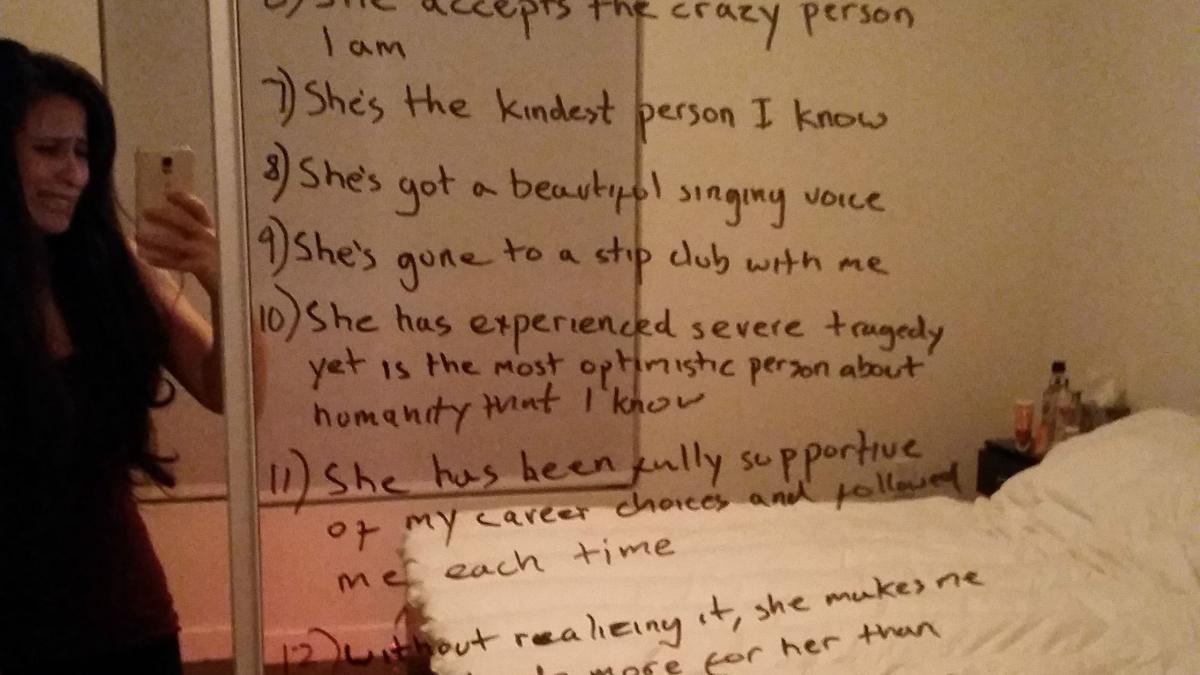 She accepts the crazy person
I am
7) She's the kindest person I know
8) She's got a beautiful singing voice
9) She's gone to a stip club with me
10) She has experienced severe tragedy
yet is the most optimistic person about
humanity that I know
11) She has been fully supportive
of my career choices and followed
me each time
12) without realizing it, she makes me
more for her than